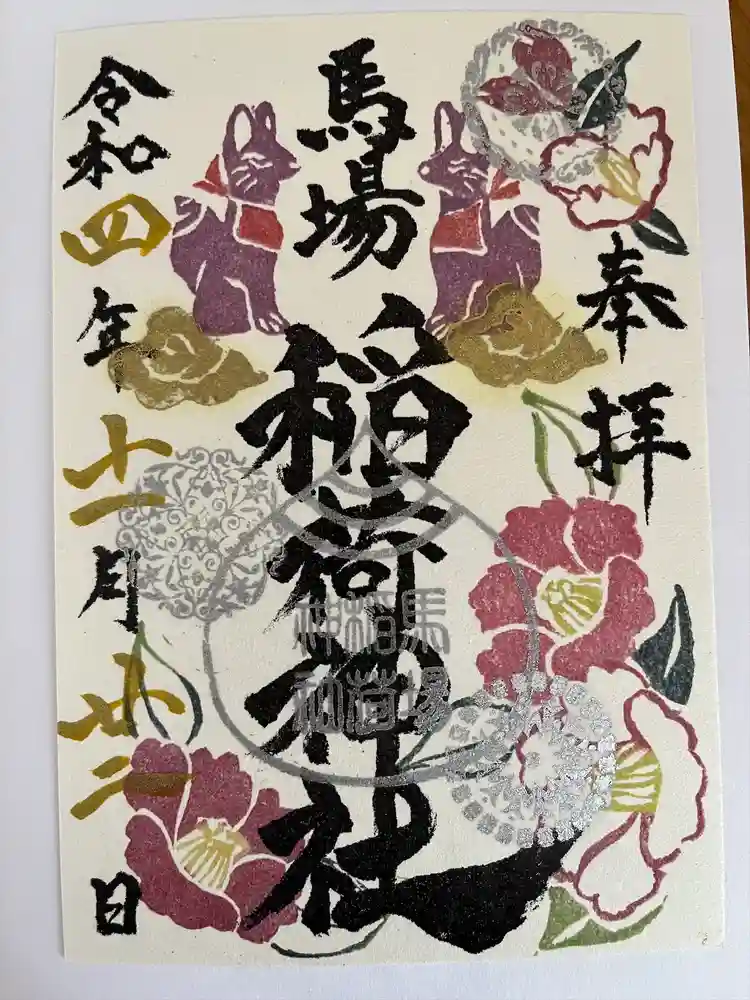 奉拝
馬場
稲荷神社
令和四年十一月廿二日
馬場
稲荷
神社